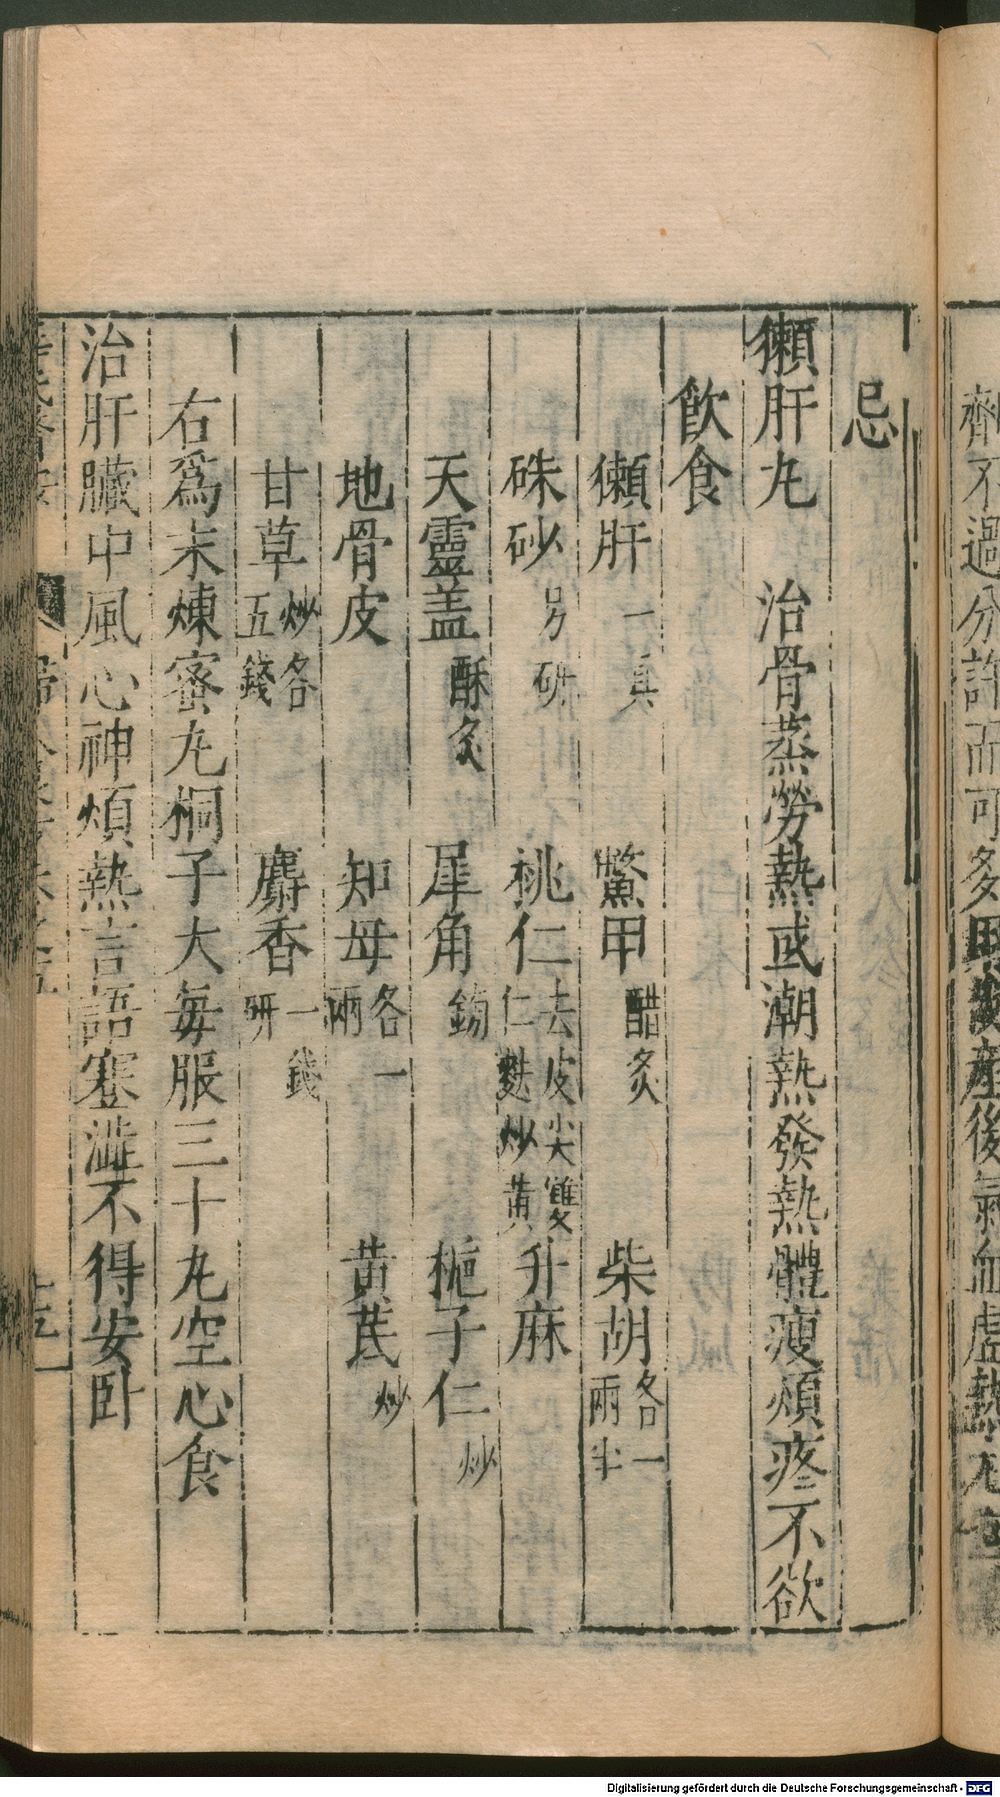 齊不過分許而可多用後產後氣血虛熱
忌
獺肝丸　治骨蒸勞熱或潮熱發熱體瘦煩疼不欲
飲食
獺肝一具　鱉甲醋炙　柴胡各一兩半
硃砂另研　桃仁去皮尖雙仁麩炒黃　升麻
天靈盖酥炙　犀角鎊　梔子仁炒
地骨皮　知母各一兩　黄芪炒
甘草炒各五錢　麝香一錢研
右爲末煉蜜丸桐子大每服三十丸空心食
治肝臟中風心神煩熱言語蹇澁不得安卧
Digitalisierung gefördert durch die Deutsche Forschungsgemeinschaft - DFG